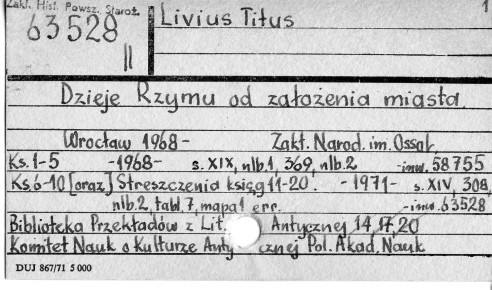 Zakł. Hist. Powsz. Staroż.
63528
II
Livius Titus
1
Dzieje Rzymu od założenia miasta.
Wrocław 1968- Zakł. Narod. im. Ossol.
Ks. 1-5 -1968- s. XIX, nlb.1, 369, nlb.2 -inw. 58755
Ks. 6-10 [oraz] Streszczenia ksiąg 11-20. -1971- s. XIV, 308,
nlb.2, tabl.7, mapa 1 err. -inw. 63528
Biblioteka Przekładów z Lit. Antycznej 14,17,20
Komitet Nauk o Kulturze Anty cznej Pol. Akad. Nauk
DUJ 867/71 5 000